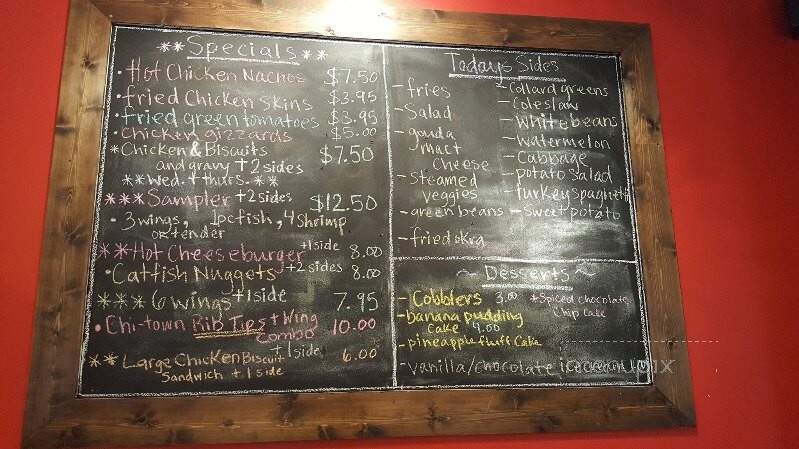 **Specials**
• Hot Chicken Nachos $7.50
• fried Chicken Skins $3.95
• fried green tomatoes $3.95
• Chicken gizzards $5.00
* Chicken & Biscuits $7.50
and gravy + 2 sides
** Wed. + thurs. **
*** Sampler + 2 sides $12.50
• 3 wings, 1pc fish, 4 Shrimp
or tender
** Hot Cheeseburger + 1 side 8.00
• Catfish Nuggets + 2 sides 8.00
*** 6 wings + 1 side 7.95
• Chi-town Rib Tips + Wing
Combo 10.00
** Large Chicken Biscuit + 1 side 6.00
Sandwich + 1 side
Todays Sides
- fries
- Salad
- gouda
mact
Cheese
- Steamed
veggies
- green beans
- fried okra
- Collard greens
- Coleslaw
- White beans
- watermelon
- Cabbage
- potato Salad
- turkey spaghetti
- Sweet potato
~ Desserts ~
- Cobblers 3.00
- banana pudding
Cake 4.00
- pineapple fluff Cake
- vanilla/chocolate icecream
+ Spiced chocolate
Chip Cake